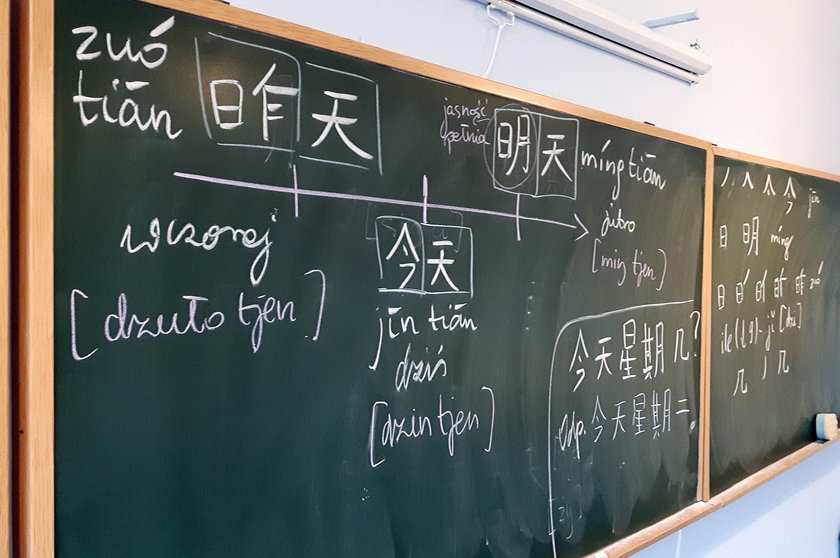 zuó
tiān
昨天
wczoraj
[dzuło tjen]
今天
jīn tiān
dziś
[dzin tjen]
jasność
pełnia
明天
míng tiān
jutro
[min tjen]
今天星期几?
odp. 今天星期二。
丿 人 亼 今 jīn
日 明 míng
日 昨 zuó
ile jǐ [dzi]
几 丿 几